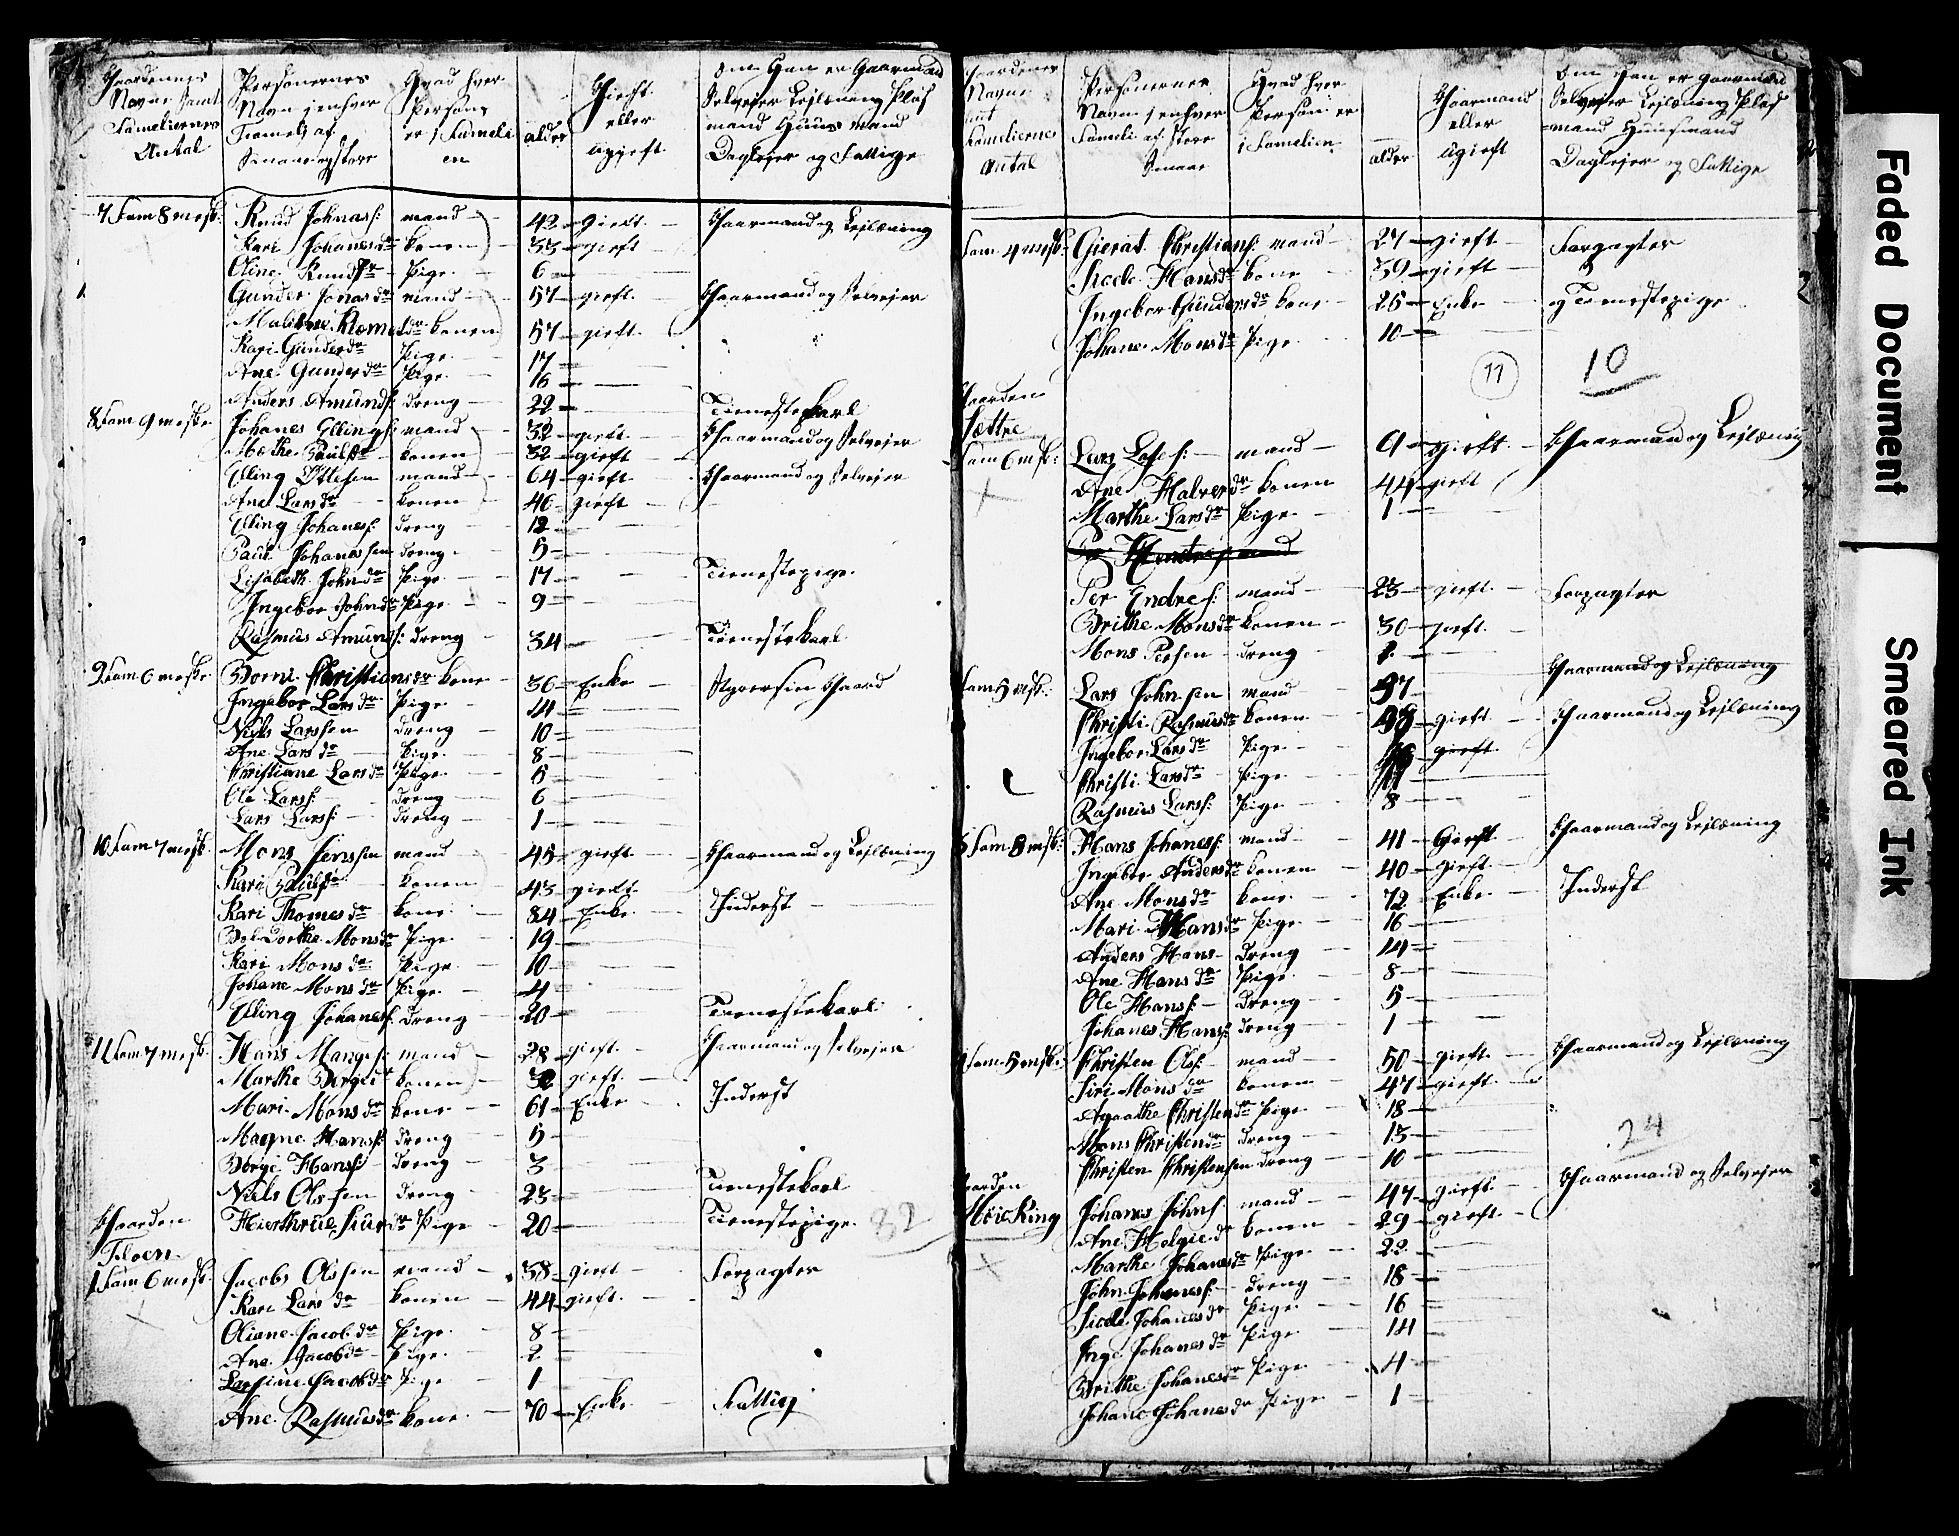 Gaardenes
Navne samt
Fameliernes
Antal
Personernes
Navn i enhver
Fameli af
Smaae og store
Hvad hver
Person
er i Fameli
en
alder
Gieft
eller
ugieft
om Han er Gaarmand
Selveier Lejlænding Plas
mand Huus mand
Daglejer og Fattige
7 Fam 8 mesk: Knud Johnas: mand 42 gieft Gaarmand og Lejlænding
Kari Johanesdr konen 33 gieft
Oline Knudsdr Pige 6
Gunder Jonasdr mand 57 gieft Gaarmand og Selvejer
konen 57 gieft
Kari Gunderdr Pige 17
Ane Gunderdr Pige 16
Anders Amunds: dreng 22 Tienestekarl
8 Fam 9 meske Johanes Ellings: mand 32 gieft Gaarmand og Selvejer
Marthe Paulsdr konen 32 gieft
Elling Ottesen mand 64 gieft Gaarmand og Selvejer
Ane Larsdr konen 46 gieft
Elling Johanes: dreng 12
Paul Johanessen dreng 5
Lisabeth Johndr Pige 17 Tienestepige
Ingebor Johndr Pige 9
Rasmus Amunds: dreng 34 Tienestekarl
9 Fam 6 meske Borni Christiansdr kone 36 Enke Gaard
Ingebor Larsdr Pige 14
Niels Larssen dreng 10
Ane Larsdr Pige 8
Christiane Larsdr Pige 5
Ole Larss: dreng 6
Lars Larss: dreng 1
10 Fam 7 mesk: Mons Jenssen mand 45 gieft Gaarmand og Lejlænding
Kari Paulsdr konen 43 gieft
Kari Thomesdr kone 84 Enke Inderst
Bol Dorthe Monsdr Pige 19
Kari Monsdr Pige 10
Johane Monsdr Pige 4
Elling Johanes: dreng 20 Tienestekarl
11 Fam 7 mesk: Hans Manges: mand 28 gieft Gaarmand og Selvejer
Marthe Børgedr konen 32 gieft
Mari Monsdr kone 61 Enke Inderst
Magne Hanss: dreng 5
Børge Hanss: dreng 3
Niels Olssen dreng 23 Tienestekarl
Pige 20 Tienestepige 82
Gaarden
Floen
1 Fam 6 mesk: Jacobs Olssen mand 38 gieft Forpagter
Kari Larsdr konen 44 gieft
Oliane Jacobdr Pige 8
Ane Jacobdr Pige 2
Larsine Jacobdr Pige 1
Ane Rasmusdr kone 70 Enke Fattig
Gaardenes
Navne
samt
Fameliernes
Antal
Personernes
Navn i enhver
Fameli af Store
Smaae
Hvad hver
Person er
i Famelien
alder
Gaarmand
eller
ugieft
om Han er gaarmand
Selvejer Lejlænding Plas
mand Huusmand
Daglejer og Fattige
Fam 4 mesk: Gierat Christians: mand 27 gieft Forpagter
Siade Hansdr kone 39 gieft
Ingebor Gundersdr kone 25 Enke og Tienestepige
Johane Monsdr Pige 10
11
10
Gaarden
Sættre
Fam 6 msk: Lars Lases: mand 9 gieft Gaarmand og Lejlænding
Ane Halverdr konen 44 gieft
Marthe Larsdr Pige 1
Per Endres: mand 23 gieft Forpagter
Brithe Monsdr konen 30 gieft
Mons Persen dreng 1
Gaarmand og Lejlænding
Fam 5 mesk: Lars Johnsen mand 37
Christi Rasmusdr konen 38 gieft Gaarmand og Lejlænding
Ingebor Larsdr Pige gieft
Christi Larsdr Pige 11
Rasmus Larss: Pige 8
5 Fam 8 msk: Hans Johaness: mand 41 Gieft Gaarmand og Lejlænding
Ingebor Andersdr konen 40 gieft
Ane Monsdr kone 72 Enke Inderst
Mari Hansdr Pige 16
Anders Hans dreng 14
Ane Hansdr Pige 8
Ole Hanss: dreng 5
Johanes Hans: dreng 1
Fam 5 mesk: Christen Ols: mand 50 gieft Gaarmand og Lejlænding
Siri Monsdr konen 47 gieft
Agaathe Christendr Pige 18
Mons Christendr dreng 13
Christen Christensen dreng 10
24
Gaarden
Høieking Johanes Johns: mand 47 gieft Gaarmand og Selvejer
Ane Helgiedr konen 29 gieft
Marthe Johanesdr Pige 22
John Johaness: dreng 18
Siade Johanesdr Pige 16
Inge Johanesdr Pige 14
Brithe Johanesdr Pige 4
Johane Johanesdr Pige 1
Faded Document
Smeared Ink